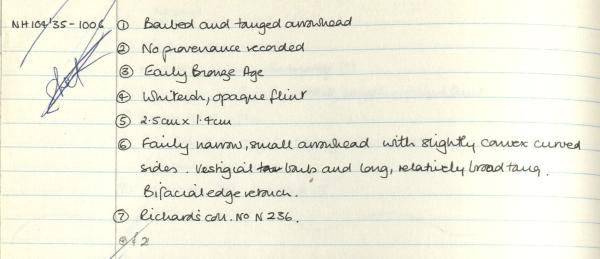 NH104'35-1006 ① Barbed and tanged arrowhead
② No provenance recorded
③ Early Bronze Age
④ Whiteish, opaque flint
⑤ 2.5cm x 1.4cm
⑥ Fairly narrow, small arrowhead with slightly convex curved
sides. Vestigial barbs and long, relatively broad tang.
Bifacial edge retouch.
⑦ Richards coll. No N 236.
2